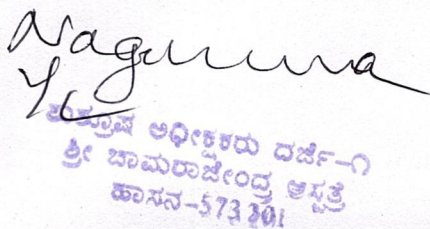 ಶುಶ್ರೂಷ ಅಧೀಕ್ಷಕರು ದರ್ಜೆ-೧
ಶ್ರೀ ಚಾಮರಾಜೇಂದ್ರ ಆಸ್ಪತ್ರೆ
ಹಾಸನ-573201